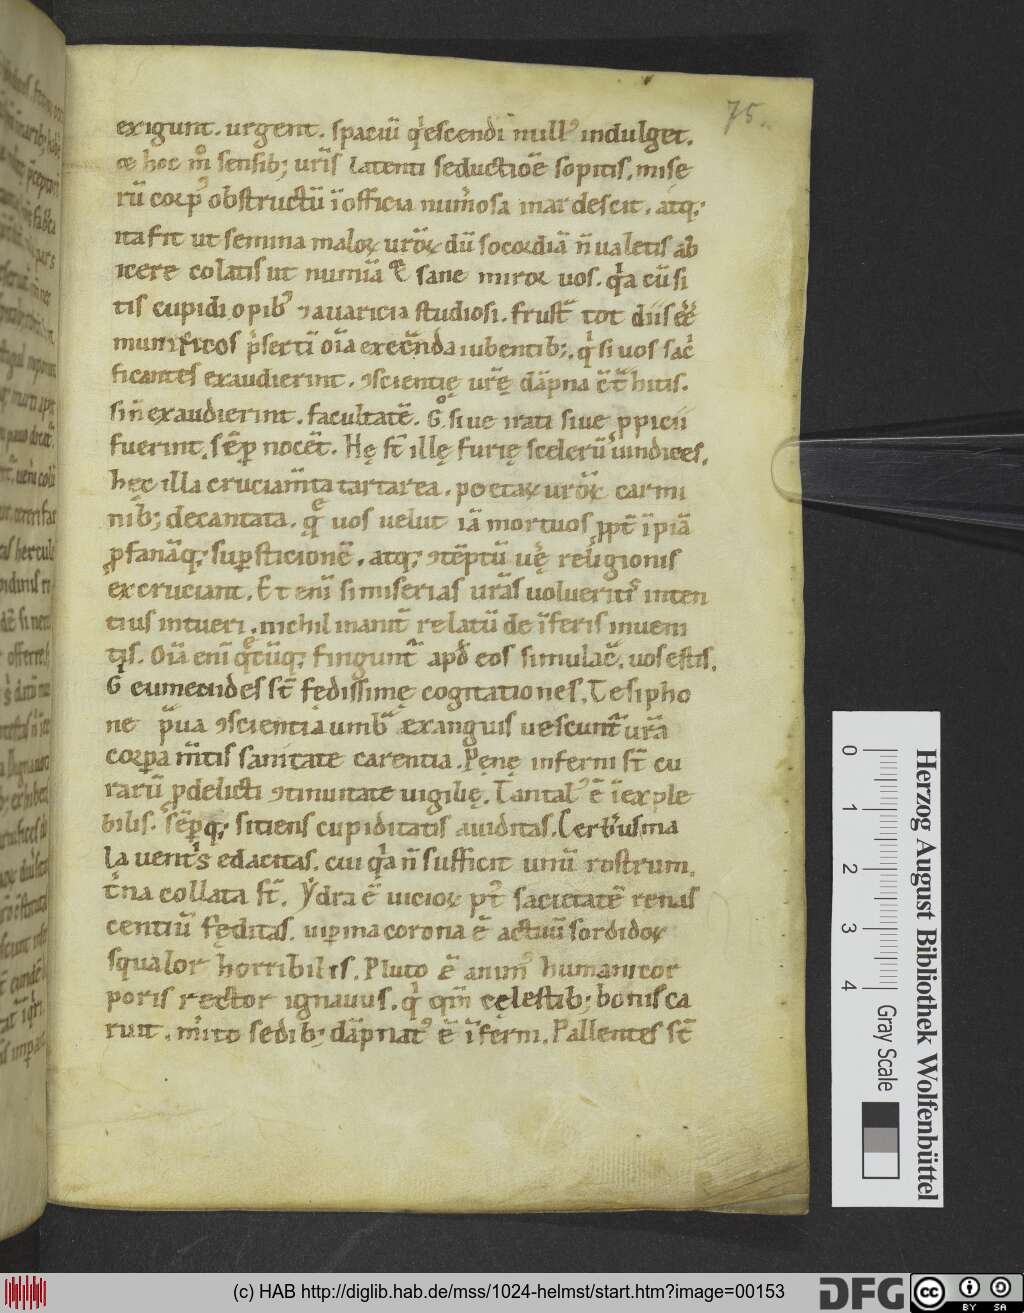 75.
exigunt. urgent. spaciū q̓escendi null᷒ indulget.
⁊ hoc m̊ sensib; ur̄is latenti seductiōe sopitis. mise
rū corp᷒ obstructū ī officia num̓osa inardescit. atq;
ita fit ut semina maloꝝ ur̄oꝝ dū socordiā n̄ ualetis ab
icere colatis ut numīa sane miror uos. q̓a cū si
tis cupidi opib᷒ ⁊ auaricia studiosi. frust̄ tot diis
munificos p̓sertī oīa exec̄nda iubentib;. q̓ si uos sac̓
ficantes exaudierint. ꝯscientię ur̄ę dāpna hitis.
si n̄ exaudierint. facultatē. G̊ siue irati siue ꝓpicii
fuerint. sēp nocēt. Hę st̄ illę furię scelerū uindices.
hęc illa cruciam̄ta tartarea. poetaꝝ ur̄oꝝ carmi
nib; decantata. uos uelut iā mortuos ꝓpt̄ īpiā
ꝓfanāq; supsticionē. atq; ꝯtēptū uęr̨ religionis
excruciant. Et enī si miserias ur̄as uoluerit᷒ inten
tius intueri. nichil inanit̄ relatū de īferis inueni
tis. Oīa enī finguntur apd̓ eos simulac̄. uos estis.
G̊ eumenides st̄ fędissimę cogitationes. Tesipho
ne p̄ua ꝯscientia umb᷒ exanguis uescunt̄ ur̄a
corpa m̄tis sanitate carentia. Pęnę inferni st̄ cu
rarū ꝓ delicti ꝯtinuitate uigilię. Tantal᷒ ē īexple
bilis. sēpq; sitiens cupiditatis auiditas. Cerb̓us ma
la uent̓s edacitas. cui q̓a n̄ sufficit unū rostrum.
t̓na collata st̄. Ydra ē uicioꝝ pt̄ sacietatē renas
centiū fęditas. uipina corona ē actuū sordidoꝝ
squalor horribilis. Pluto ē anim᷒ humani cor
poris rector ignauus. q̓ qm̄ cęlestib; bonis ca
ruit. m̓ito sedib; dāpnat᷒ ē īferni. Pallentes st̄
0 1 2 3 4
Herzog August Bibliothek Wolfenbüttel
Gray Scale
(c) HAB http://diglib.hab.de/mss/1024-helmst/start.htm?image=00153
DFG
cc
BY SA